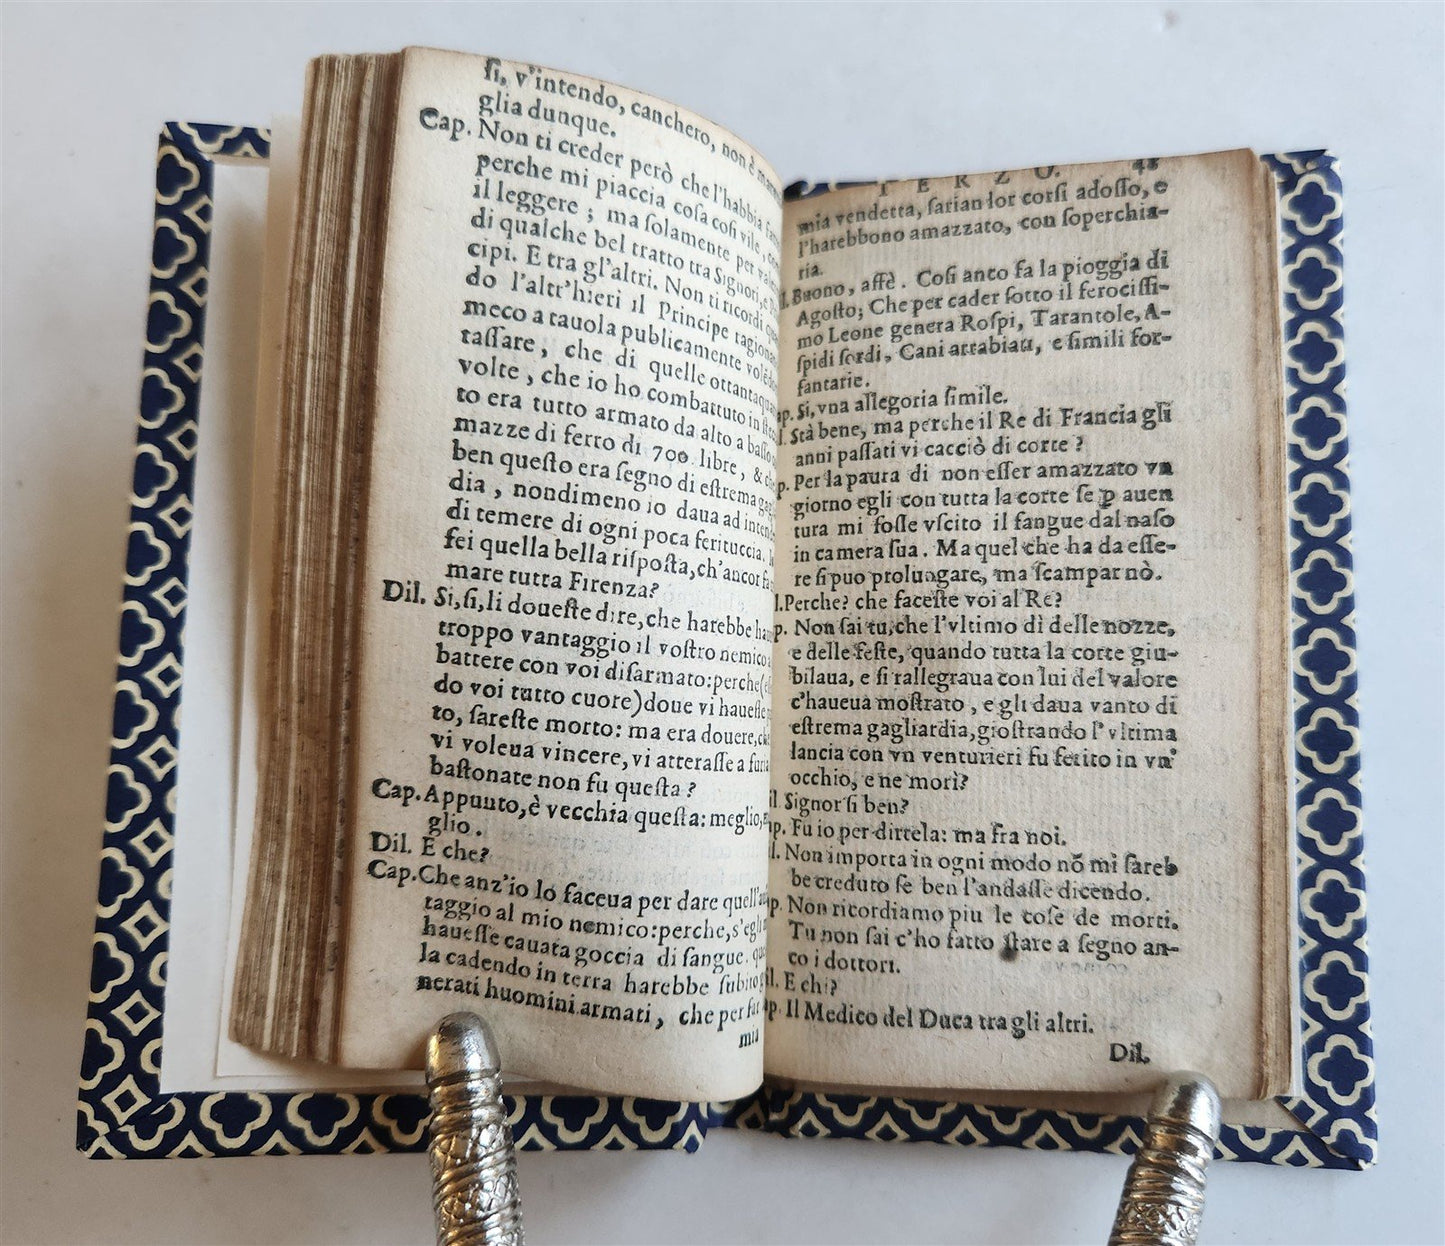 ſi, v'intendo, canchero, non è
glia dunque.
Cap. Non ti creder però che l'habbia
perche mi piaccia coſa coſi vile,
il leggere; ma ſolamente per
di qualche bel tratto tra Signori, e
cipi. E tra gl'altri. Non ti ricordi
do l'altr'hieri il Principe
meco a tauola publicamente
taſſare, che di quelle
volte, che io ho combattuto in
to era tutto armato da alto a baſſo
mazze di ferro di 700. libre, &
ben queſto era ſegno di eſtrema
dia, nondimeno io daua ad
di temere di ogni poca ferituccia.
fei quella bella riſpoſta, ch'ancor
mare tutta Firenza?
Dil. Si, ſi, li doueſte dire, che harebbe
troppo vantaggio il voſtro nemico a
battere con voi diſarmato: perche
do voi tutto cuore) doue vi haueſſe
to, ſareſte morto: ma era douere,
vi voleua vincere, vi atteraſſe a
baſtonate non fu queſta?
Cap. Appunto, è vecchia queſta: meglio,
glio.
Dil. E che?
Cap. Che anz'io lo faceua per dare quell'
taggio al mio nemico: perche, s'egli
haueſſe cauata goccia di ſangue.
la cadendo in terra harebbe ſubito
nerati huomini armati, che per
mia
TERZO. 48
mia vendetta, ſarian lor corſi adoſſo, e
l'harebbono amazzato, con ſoperchia-
ria.
l. Buono, affè. Coſi anco fa la pioggia di
Agoſto; Che per cader ſotto il ferociſſi-
mo Leone genera Roſpi, Tarantole, A-
ſpidi ſordi, Cani arrabiati, e ſimili for-
fantarie.
ap. Si, vna allegoria ſimile.
l. Stà bene, ma perche il Re di Francia gli
anni paſſati vi cacciò di corte?
p. Per la paura di non eſſer amazzato vn
giorno egli con tutta la corte ſe p auen
tura mi foſſe vſcito il ſangue dal naſo
in camera ſua. Ma quel che ha da eſſe-
re ſi puo prolungare, ma ſcampar nò.
l. Perche? che faceſte voi al Re?
p. Non ſai tu, che l'vltimo dì delle nozze,
e delle feſte, quando tutta la corte giu-
bilaua, e ſi rallegraua con lui del valore
c'haueua moſtrato, e gli daua vanto di
eſtrema gagliardia, gioſtrando l'vltima
lancia con vn venturieri fu ferito in vn'
occhio, e ne morì?
il. Signor ſi ben?
ap. Fu io per dirtela: ma fra noi.
il. Non importa in ogni modo nō mi ſareb
be creduto ſe ben l'andaſſe dicendo.
ap. Non ricordiamo piu le coſe de morti.
Tu non ſai c'ho fatto ſtare a ſegno an-
co i dottori.
il. E chi?
ap. Il Medico del Duca tra gli altri.
Dil.